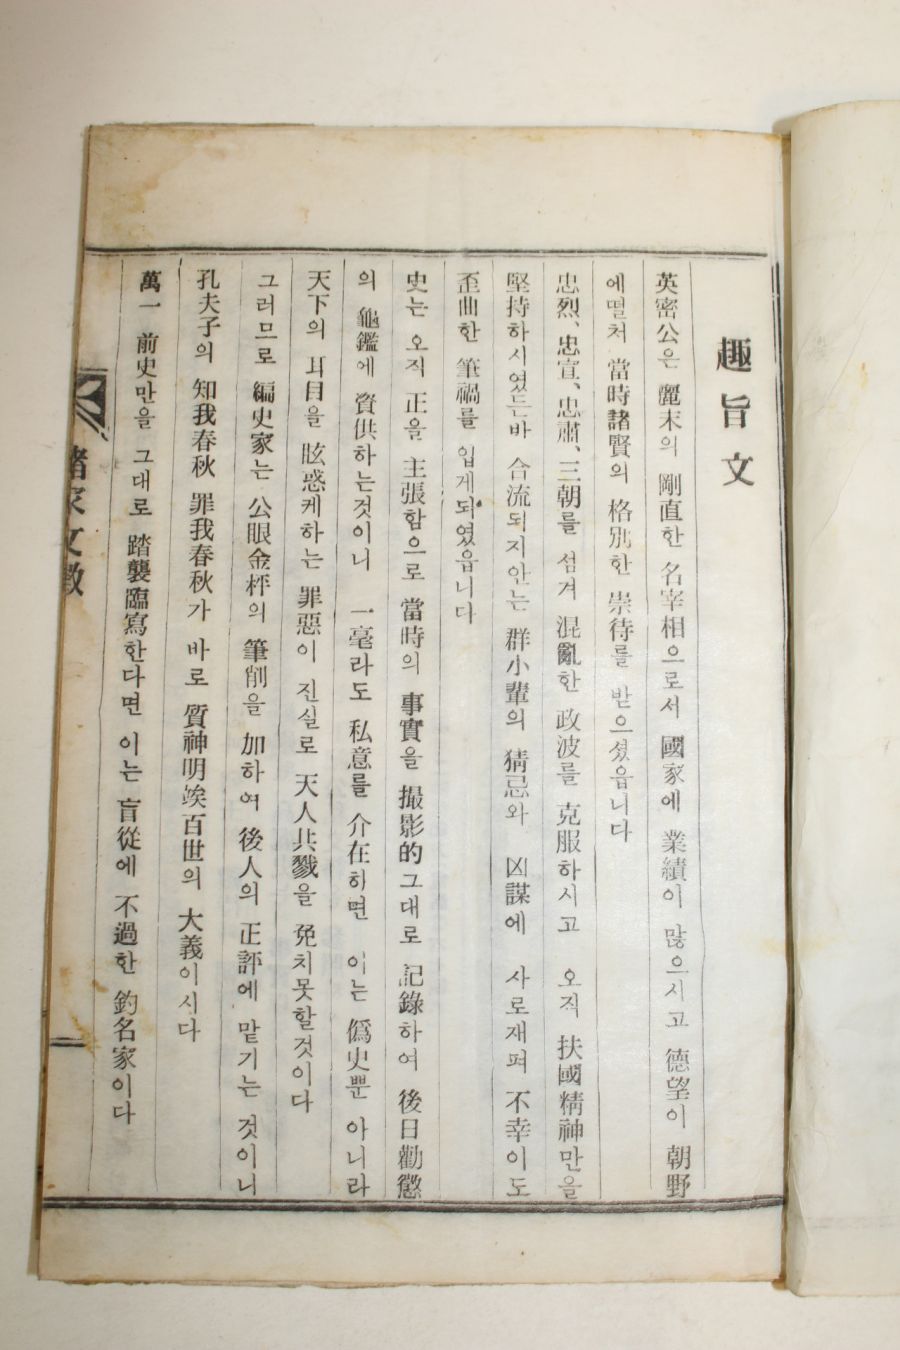 趣旨文
英密公은 麗末의 剛直한 名宰相으로서 國家에 業績이 많으시고 德望이 朝野
에떨처 當時諸賢의 格別한 崇待를 받으셨읍니다
忠烈、忠宣、忠肅、三朝를 섬겨 混亂한 政波를 克服하시고 오직 扶國精神만을
堅持하시였든바 合流되지안는 群小輩의 猜忌와 凶謀에 사로재펴 不幸이도
歪曲한 筆禍를 입게되였읍니다
史는 오직 正을 主張함으로 當時의 事實을 撮影的그대로 記錄하여 後日勸懲
의 龜鑑에 資供하는것이니 一毫라도 私意를 介在하면 이는 僞史뿐 아니라
天下의 耳目을 眩惑케하는 罪惡이 진실로 天人共戮을 免치못할것이다
그러므로 編史家는 公眼金枰의 筆削을 加하여 後人의 正評에 맡기는 것이니
孔夫子의 知我春秋 罪我春秋가 바로 質神明竢百世의 大義이시다
萬一 前史만을 그대로 踏襲臨寫한다면 이는 盲從에 不過한 釣名家이다
諸家文徵
一